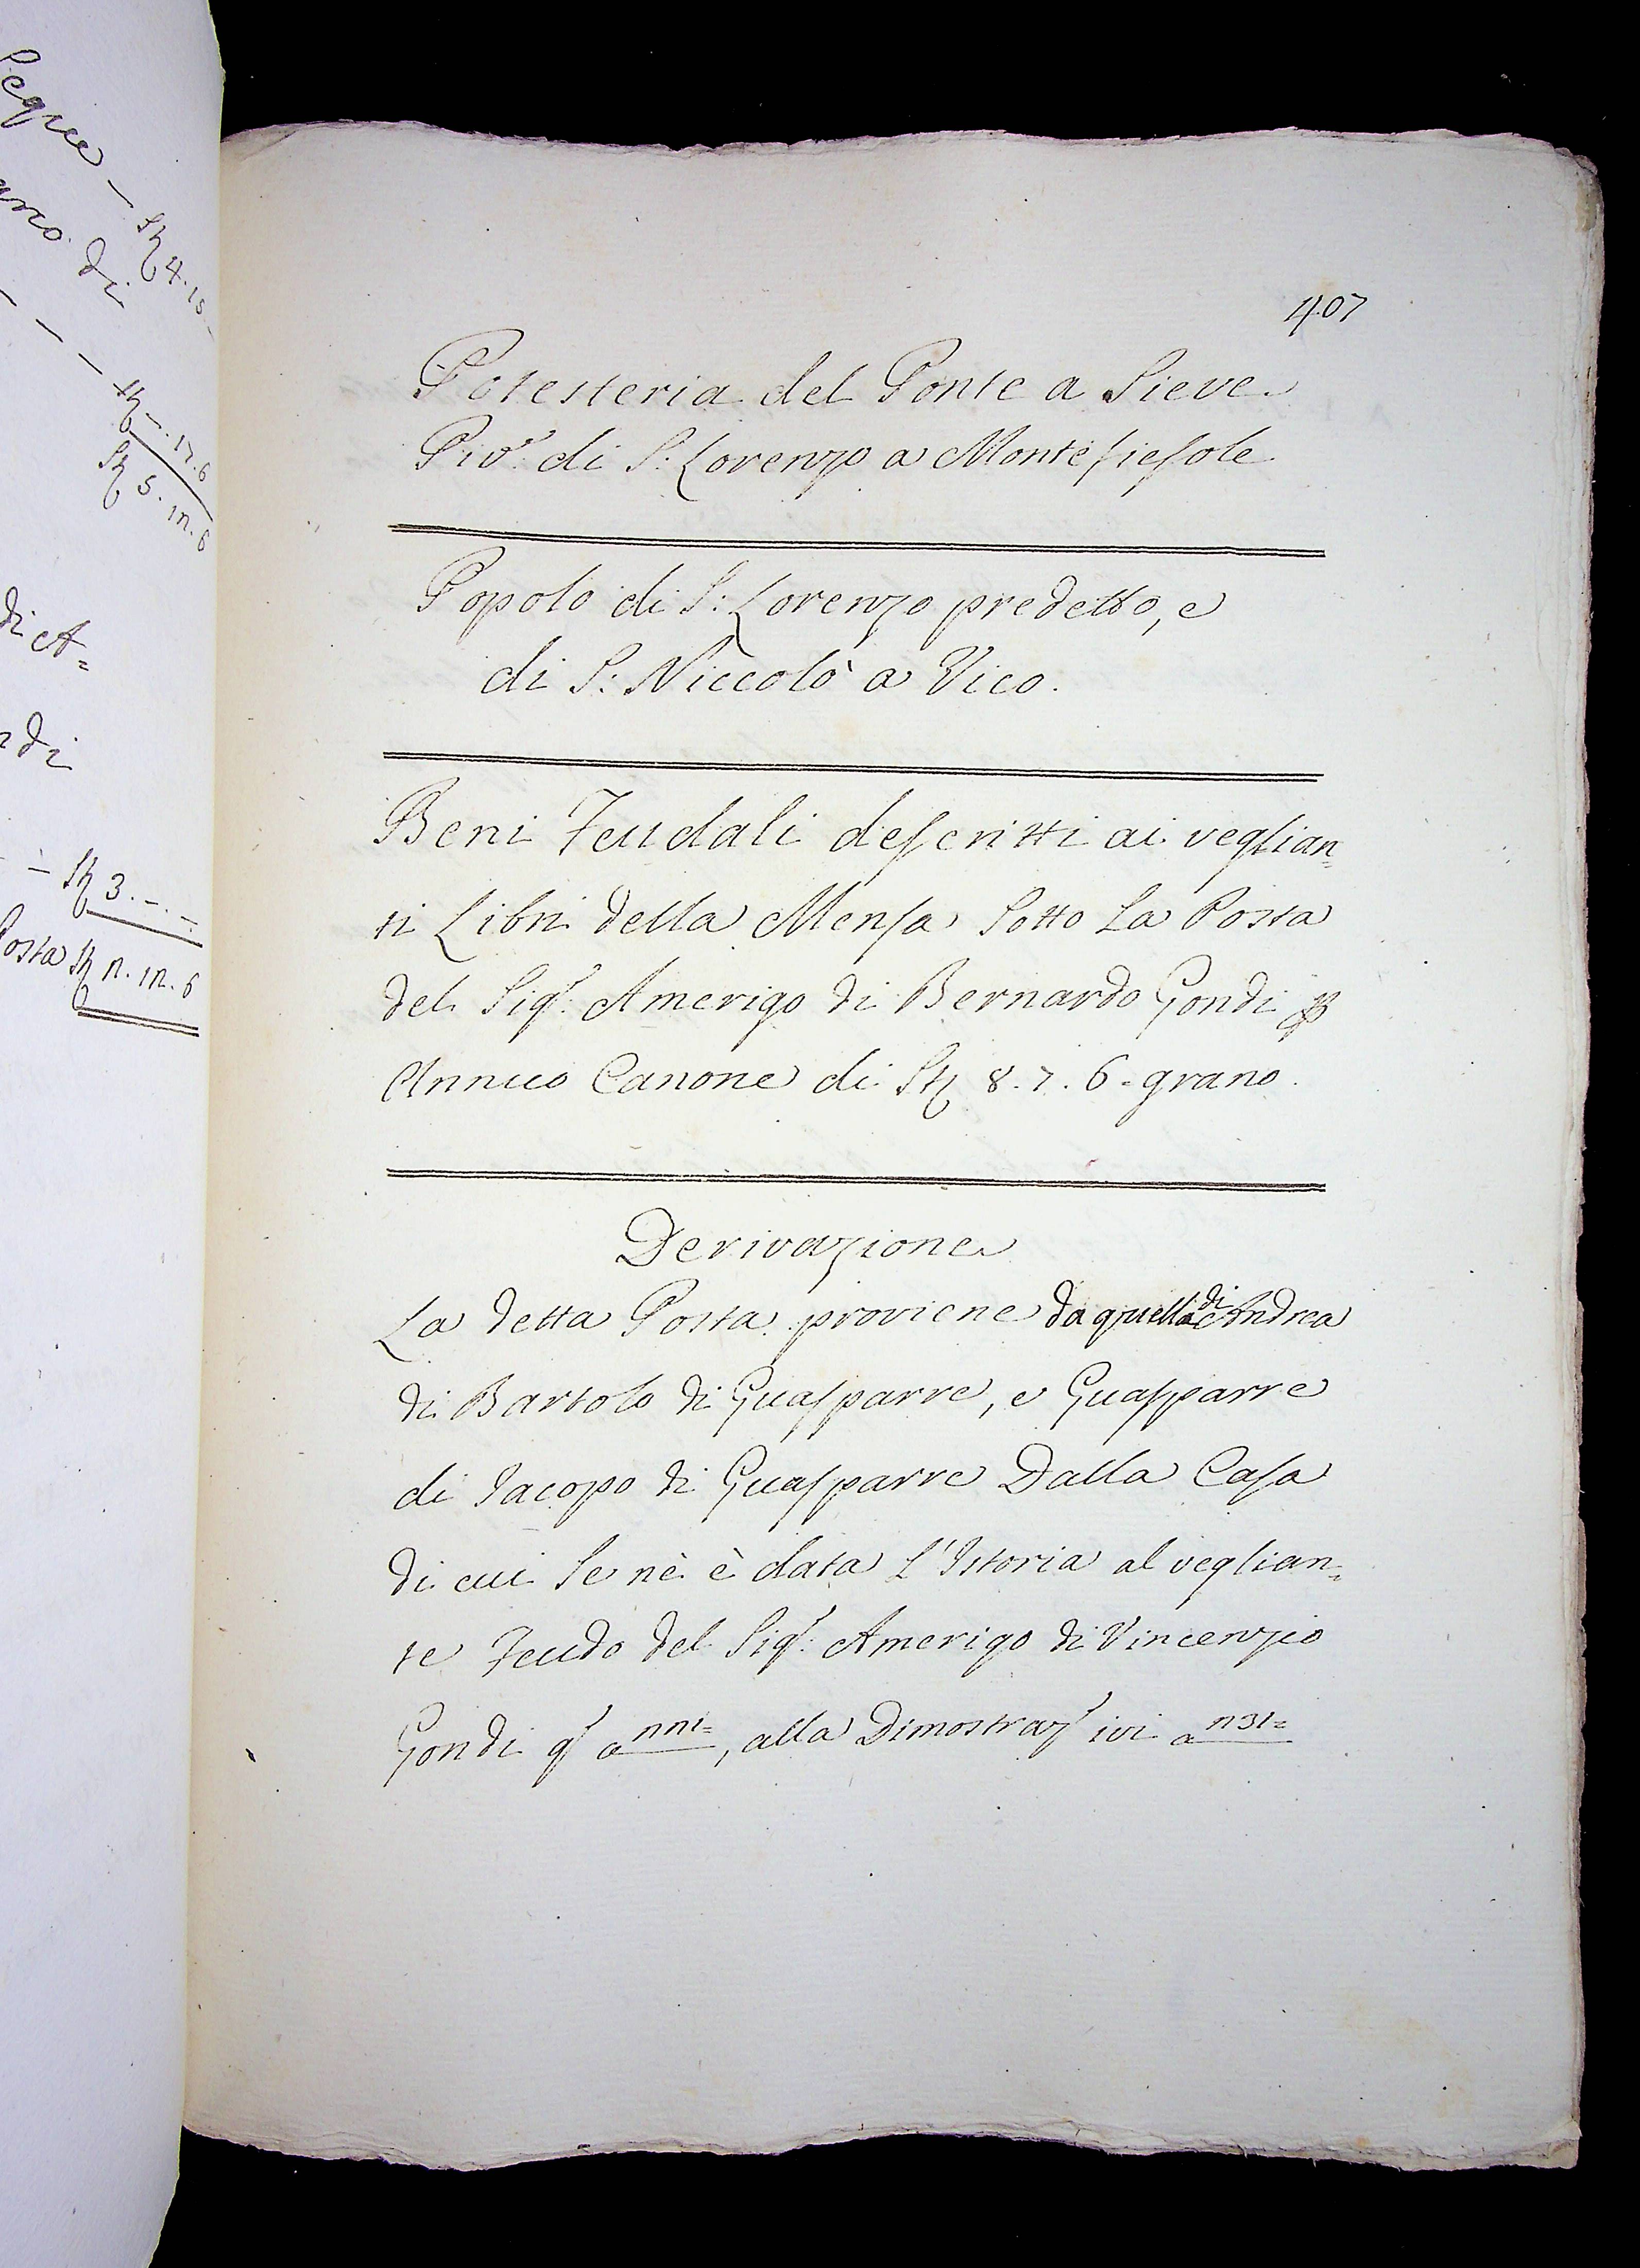 Segue - St 4.15-
ano di
- - - St -.17.6
St 5.12.6
di A=
di
- - St 3.-.-
Posta St 2.12.6
407
Potesteria del Ponte a Sieve
Piv.e di S: Lorenzo a Montefiesole
Popolo di S: Lorenzo predetto, e
di S: Niccolò a Vico.
Beni Feudali descritti ai veglian=
ti Libri della Mensa Sotto La Posta
del Sig.r Amerigo di Bernardo Gondi p
Annuo Canone di St 8.7.6= grano.
Derivazione
La detta Posta proviene da quella di Andrea
di Bartolo di Guasparre, e Guasparre
di Jacopo di Guasparre Dalla Casa
di cui Se nè è data L'Istoria al veglian=
te Feudo del Sig.r Amerigo di Vincenzio
Gondi q a 221=, alla Dimostraz ivi a 231=